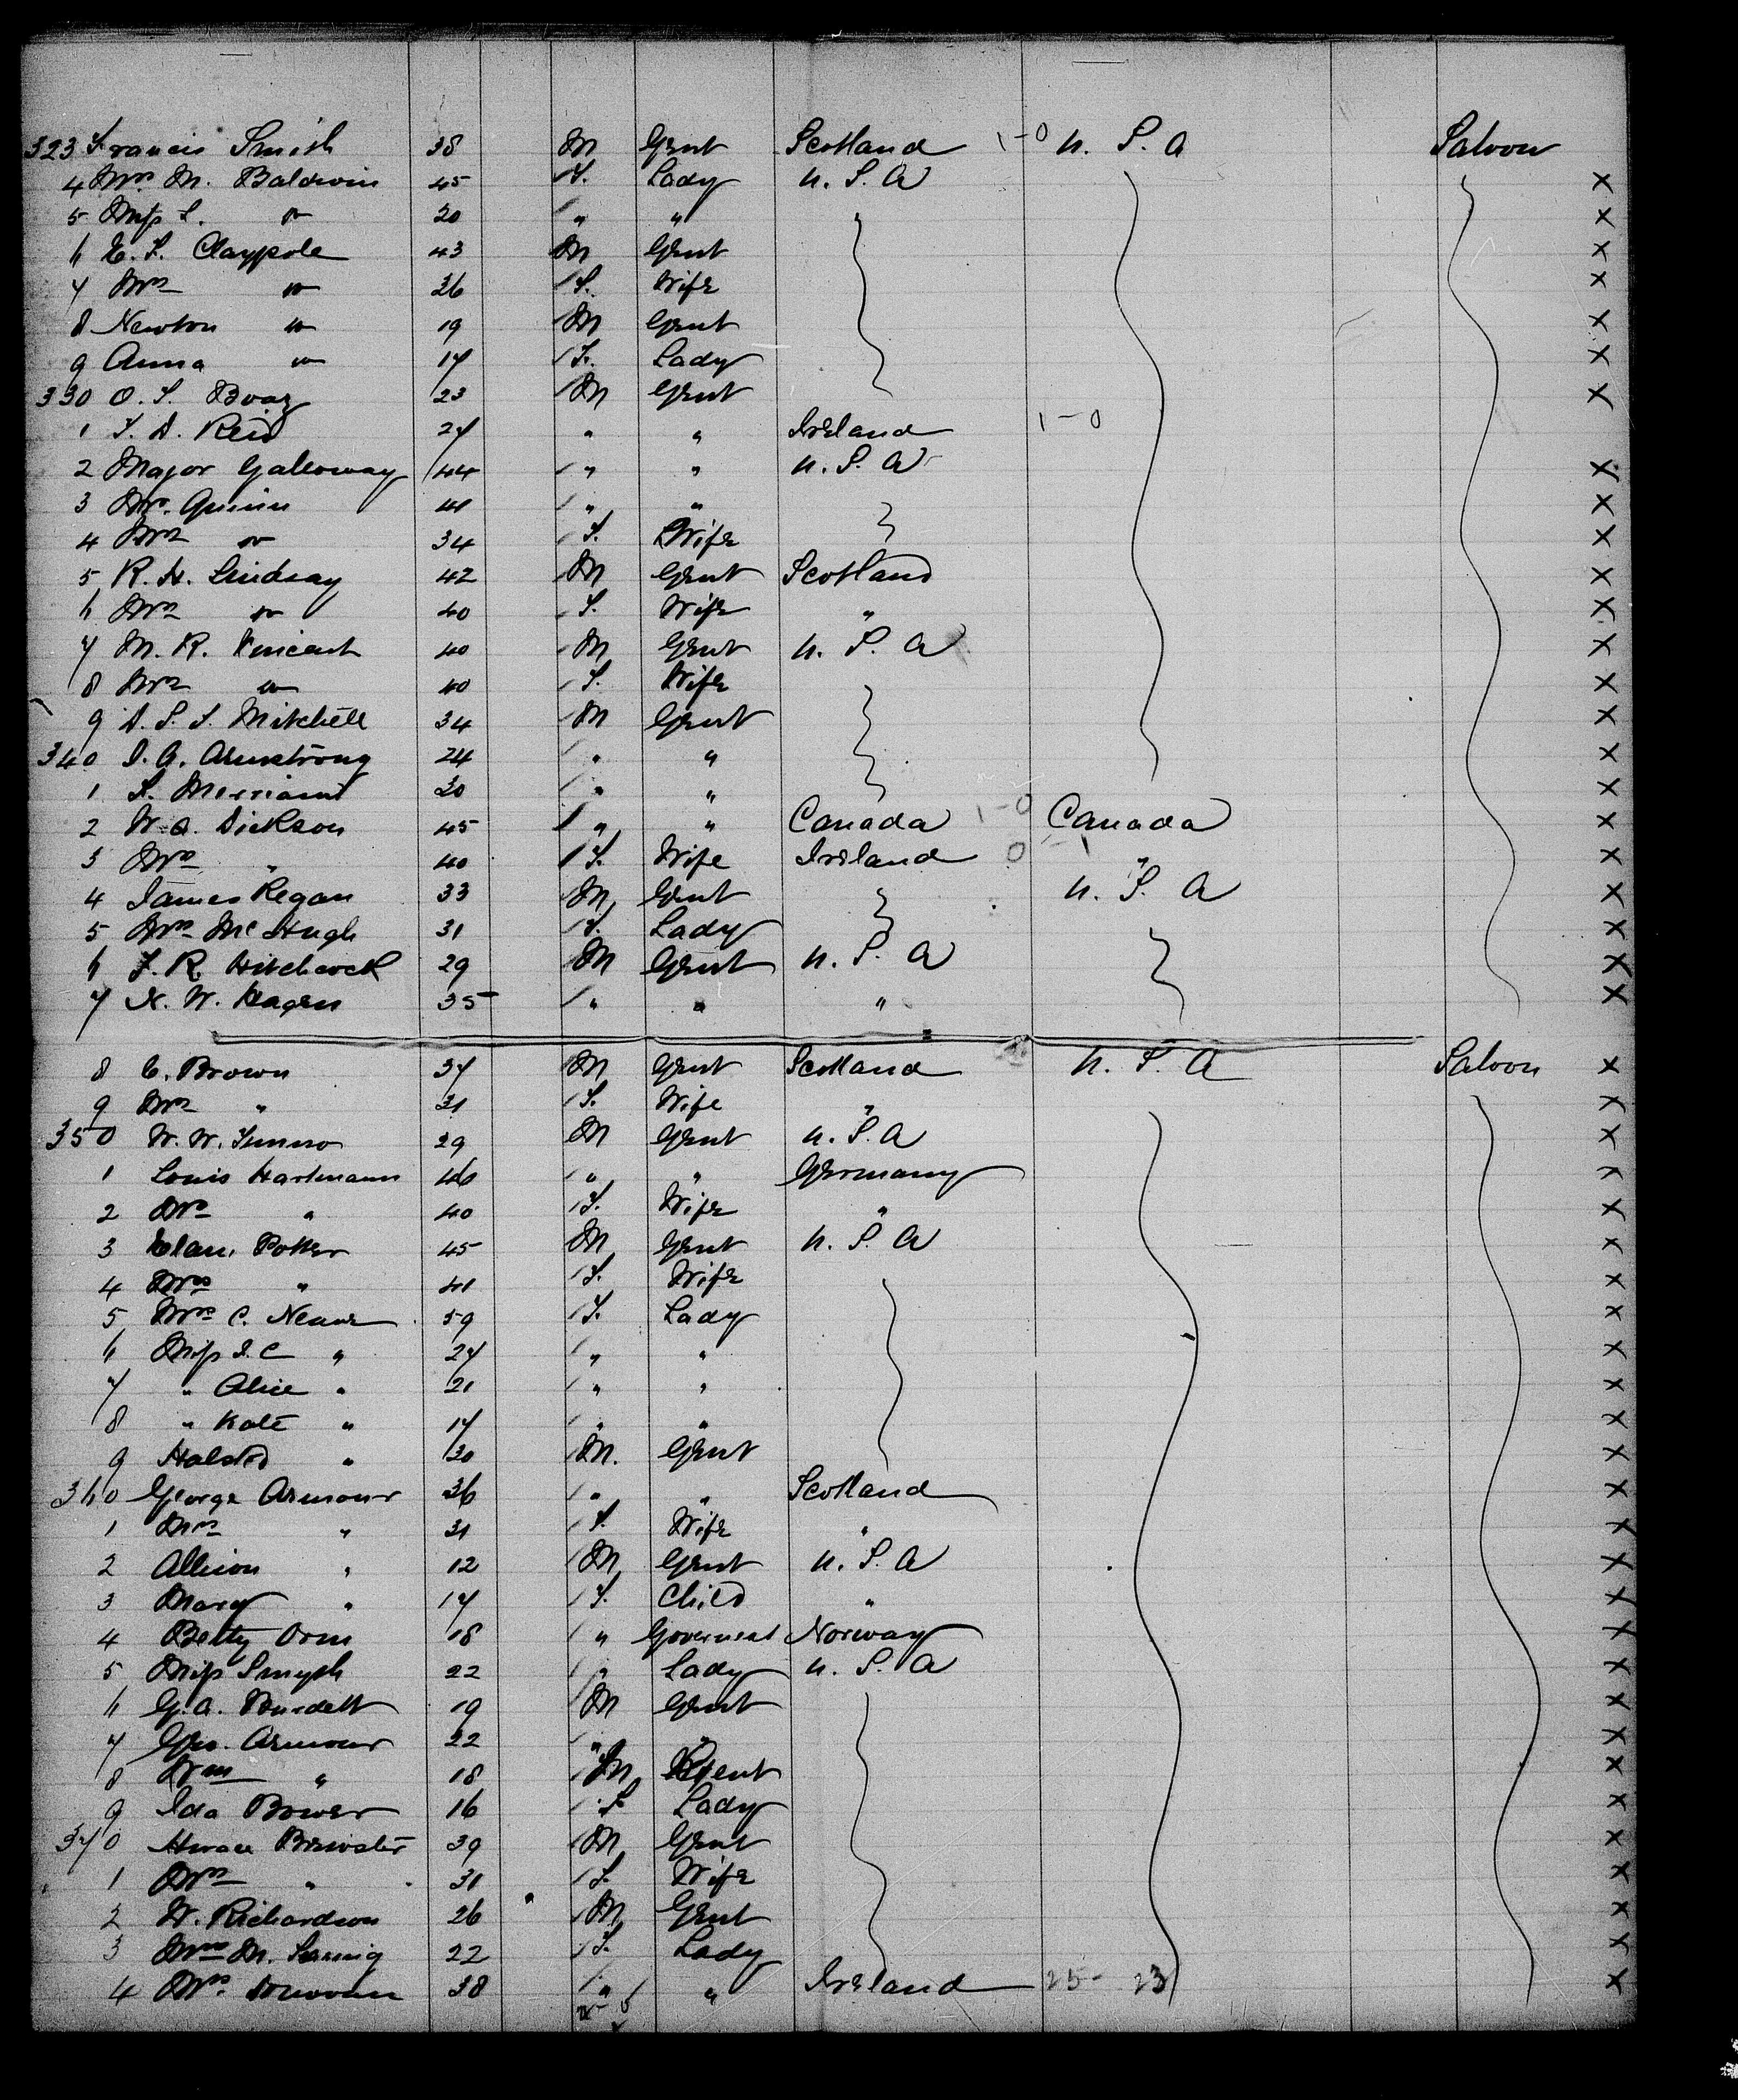 323 Francis Smith 38 M Gent Scotland 1-0 U. S. A Saloon
4 Mrs M. Baldwin 45 F. Lady U. S. A X
5 Miss L. " 20 " " X
6 E. S. Claypole 43 M Gent X
7 Mrs " 36 F. Wife X
8 Newton " 19 M Gent X
9 Anna " 17 F. Lady X
330 O. S. Boaz 23 M Gent X
1 J. A. Reid 27 " " Ireland 1-0
2 Major Galloway 44 " " U. S. A X
3 Mr. Quinn 41 " " X
4 Mrs " 34 F. Wife X
5 R. H. Lindsay 42 M Gent Scotland X
6 Mrs " 40 F. Wife " X
7 M. R. Vincent 40 M Gent U. S. A X
8 Mrs " 40 F. Wife X
9 A. S. J. Mitchell 34 M Gent X
340 D. A. Armstrong 24 " " X
1 L. Merriam 20 " " X
2 W. A. Dickson 45 " " Canada 1-0 Canada X
3 Mrs " 40 F. Wife Ireland 0-1 " X
4 James Regan 33 M Gent U. S. A X
5 Mrs McHugh 31 F. Lady X
6 F. R. Hitchcock 29 M Gent U. S. A X
7 N. W. Hagen 35 " " " X
8 C. Brown 37 M Gent Scotland U. S. A Saloon X
9 Mrs " 31 F. Wife " X
350 W. W. 29 M Gent U. S. A X
1 Louis Hartmann 46 " " Germany X
2 Mrs " 40 F. Wife " X
3 Clan. Potter 45 M Gent U. S. A X
4 Mrs " 41 F. Wife X
5 Mrs C. Neave 59 F. Lady X
6 Miss I. C " 27 " " X
7 " Alice " 21 " " X
8 " Kate " 17 " " X
9 Halsted " 30 M. Gent X
360 George Armour 36 " " Scotland X
1 Mrs " 31 F. Wife " X
2 Allison " 12 M Gent U. S. A X
3 Mary " 17 F. Child " X
4 Betty Orm 18 " Governess Norway X
5 Miss Smyth 22 " Lady U. S. A X
6 G. A. Burdett 19 M Gent X
7 Geo. Armour 22 " " X
8 Wm " 18 M Gent X
9 Ida Bower 16 F Lady X
370 Horace Brewster 39 M Gent X
1 Mrs " 31 F. Wife X
2 W. Richardson 26 M Gent X
3 Mrs M. 22 F. Lady X
4 Mrs. Donovan 38 " " Ireland 25-23 X